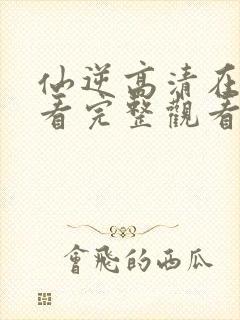 仙逆高清在
看完整觀看
會飛的西瓜